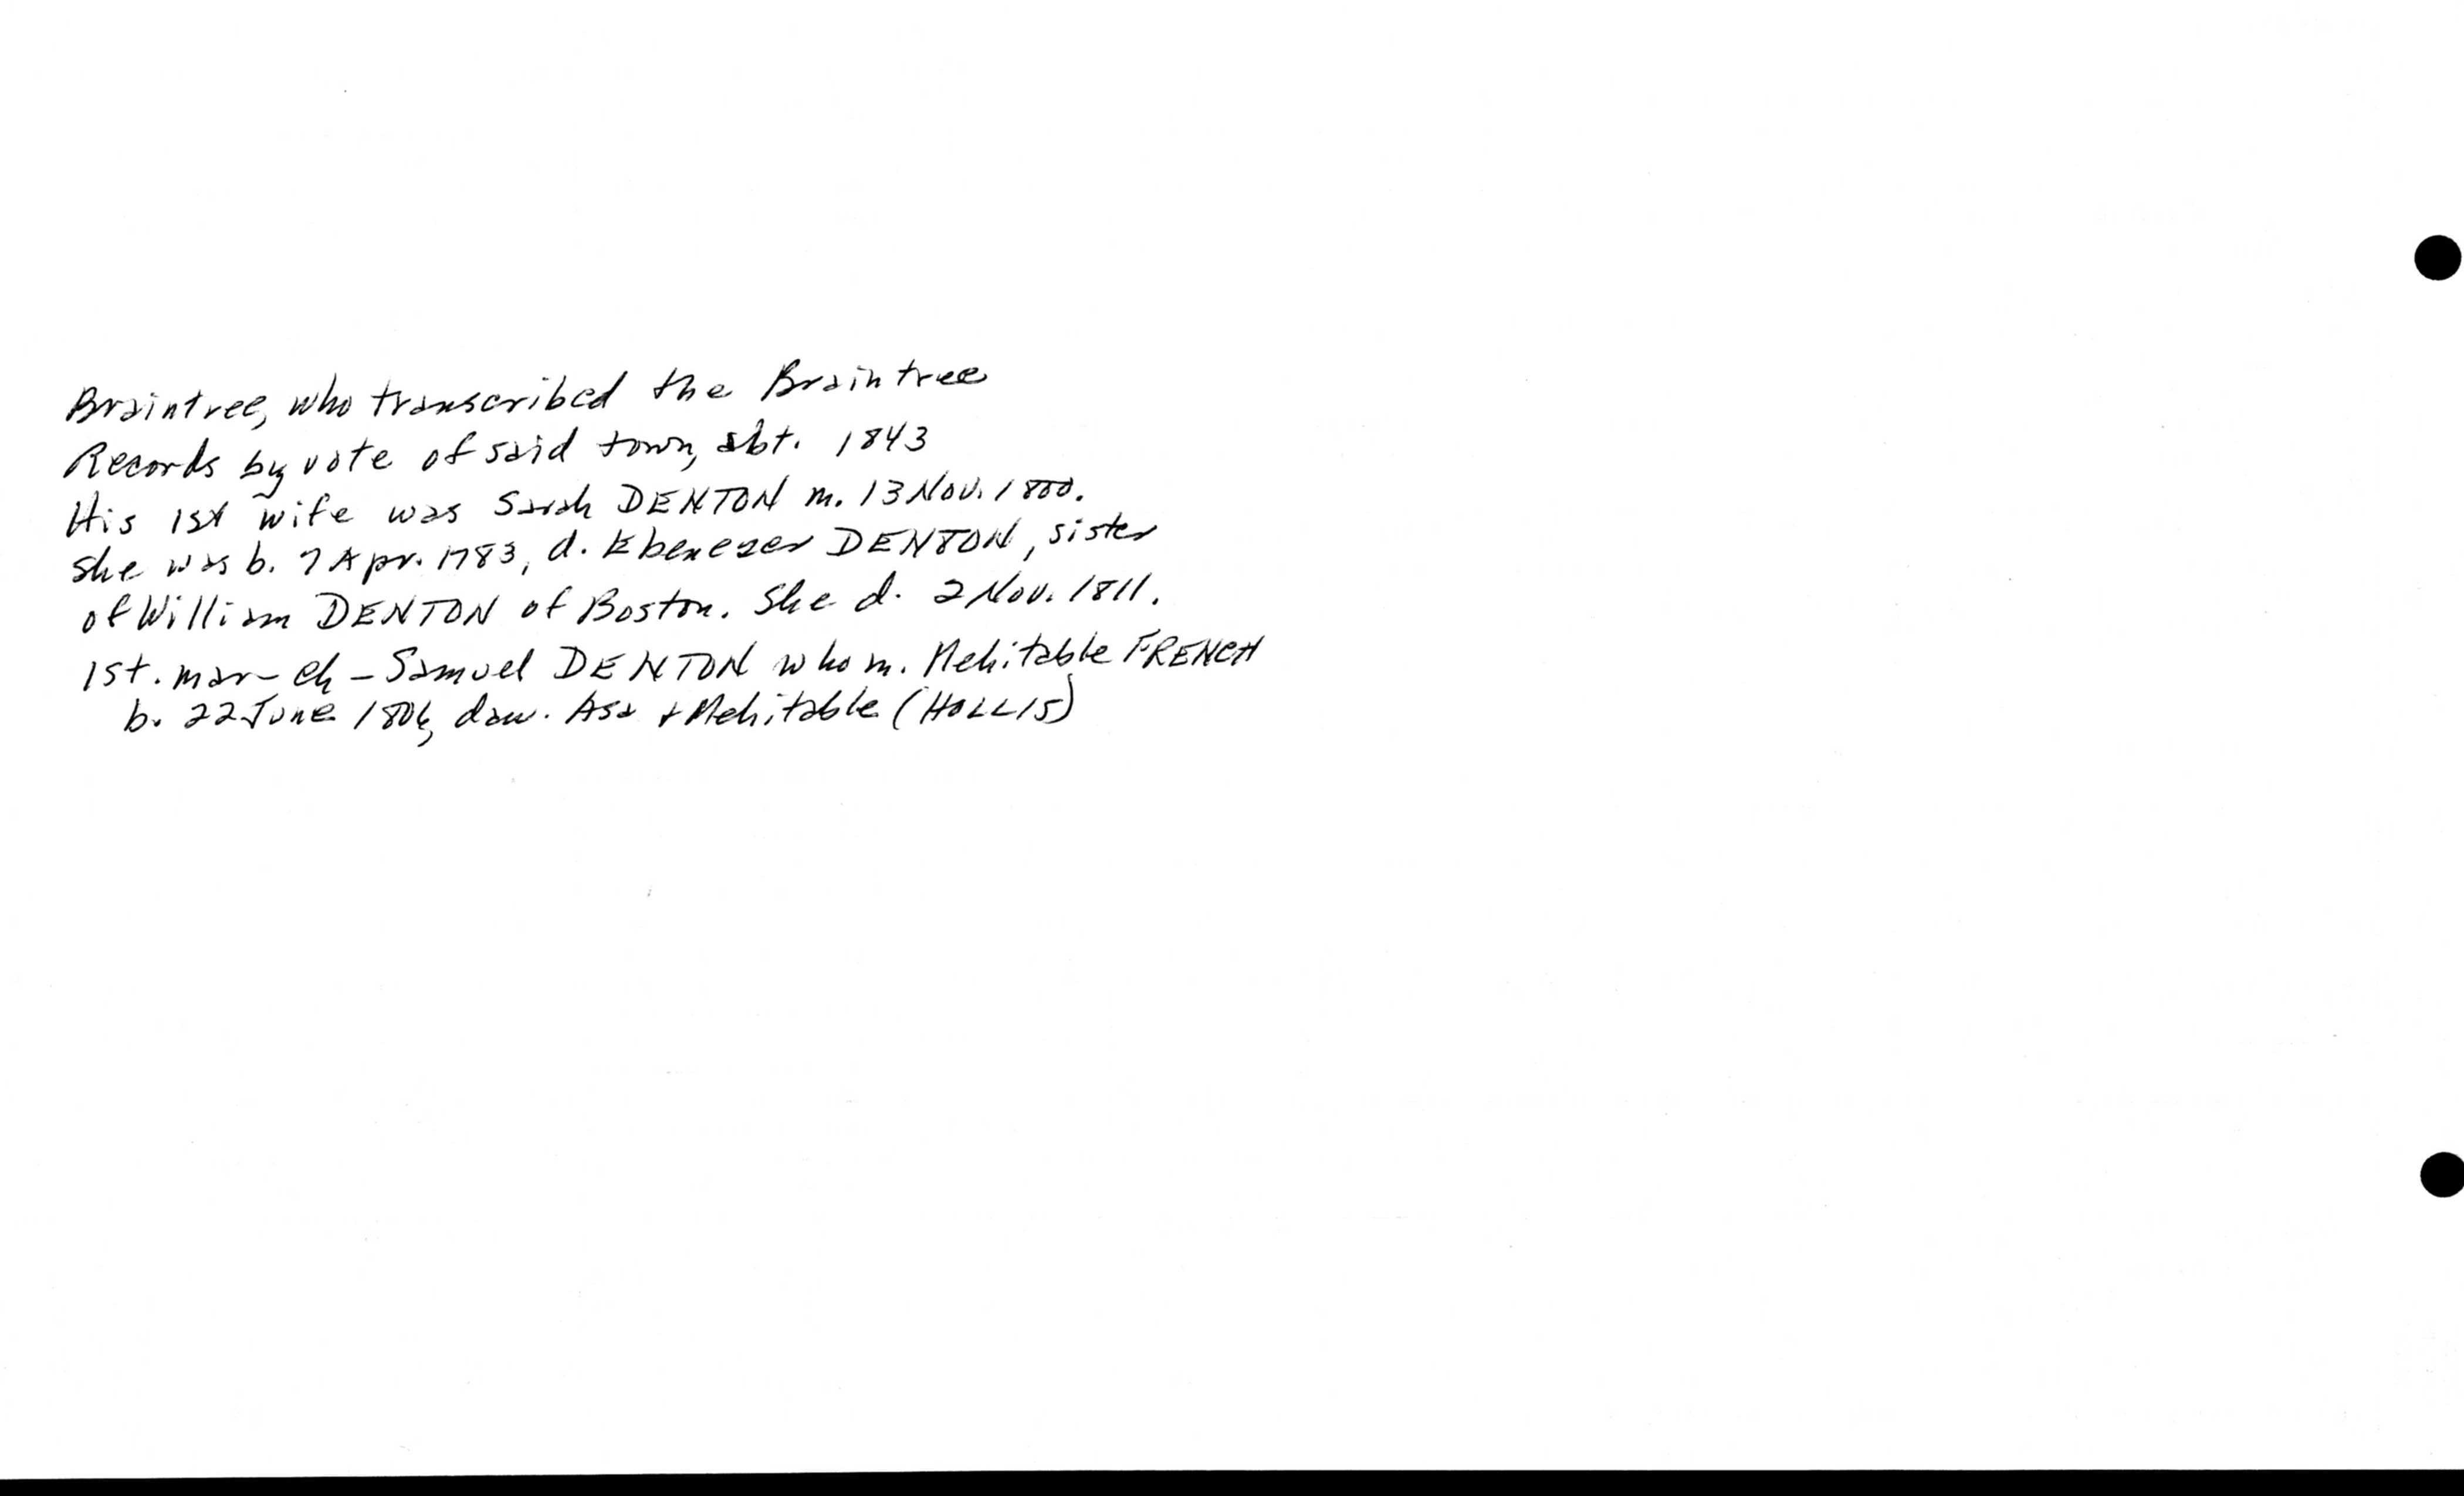 Braintree, who transcribed the Braintree
Records by vote of said town, abt. 1843
His 1st wife was Sarah DENTON m. 13 Nov. 1800.
She was b. 7 Apr. 1783, d. Ebenezer DENTON, sister
of William DENTON of Boston. She d. 2 Nov. 1811.
1st. mar - ch - Samuel DENTON who m. Mehitable FRENCH
b. 22 June 1806, dau. Asa + Mehitable (HOLLIS)